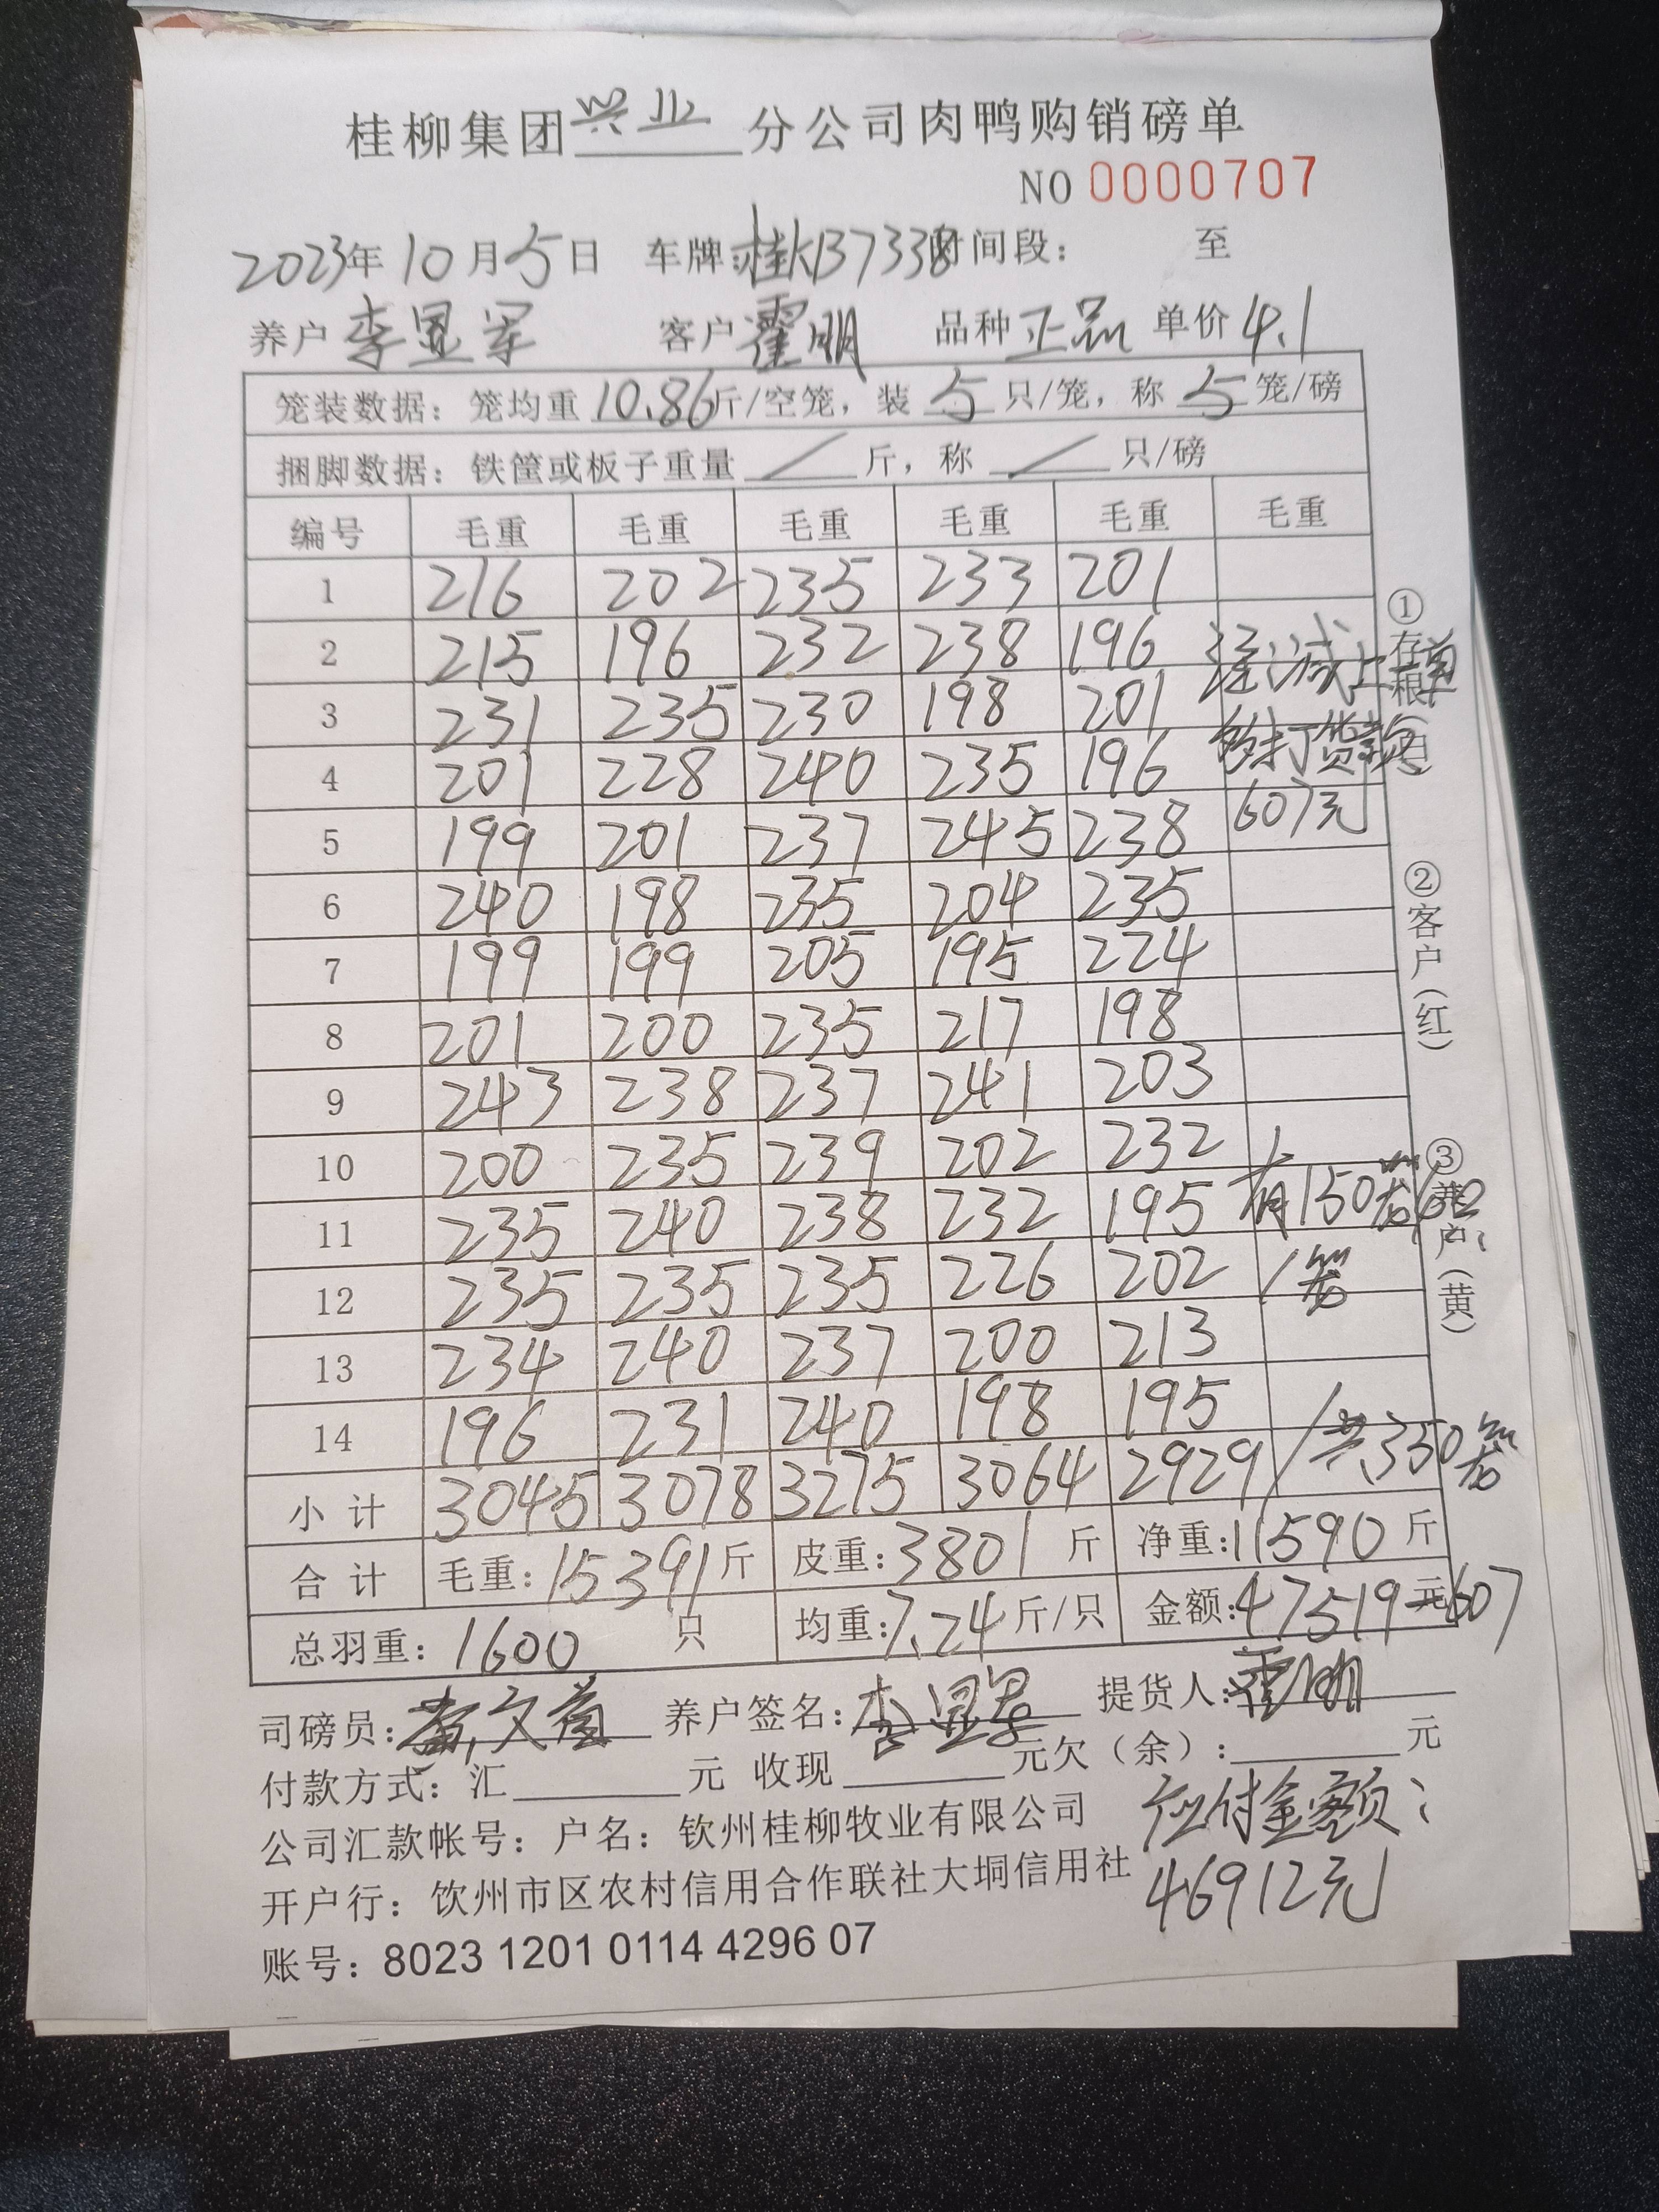 桂柳集团兴业分公司肉鸭购销磅单
NO 0000707
2023年10月5日 车牌:桂KB7338 时间段: 至
养户 李显军 客户 霍明 品种 正品 单价 4.1
笼装数据: 笼均重 10.86 斤/空笼, 装 5 只/笼, 称 5 笼/磅
捆脚数据: 铁筐或板子重量 / 斤, 称 / 只/磅
编号 毛重 毛重 毛重 毛重 毛重 毛重
1 216 202 235 233 201
2 215 196 232 238 196 减上单
3 231 235 230 198 201
4 201 228 240 235 196 多打货款
5 199 201 237 245 238 607元
6 240 198 235 204 235
7 199 199 205 195 224
8 201 200 235 217 198
9 243 238 237 241 203
10 200 235 239 202 232
11 235 240 238 232 195 有150笼
12 235 235 235 226 202 /笼
13 234 240 237 200 213
14 196 231 240 198 195
小计 3045 3078 3275 3064 2929 /共350笼
合计 毛重:15391斤 皮重:3801斤 净重:11590斤
总羽重:1600只 均重:7.24斤/只 金额:47519元-607
司磅员: 养户签名:李显军 提货人:霍明
付款方式:汇 元 收现 元欠(余): 元
公司汇款帐号:户名:钦州桂柳牧业有限公司
应付金额:
开户行:钦州市区农村信用合作联社大垌信用社
46912元
账号:8023 1201 0114 4296 07
①存根(白)
②客户(红)
③养户(黄)